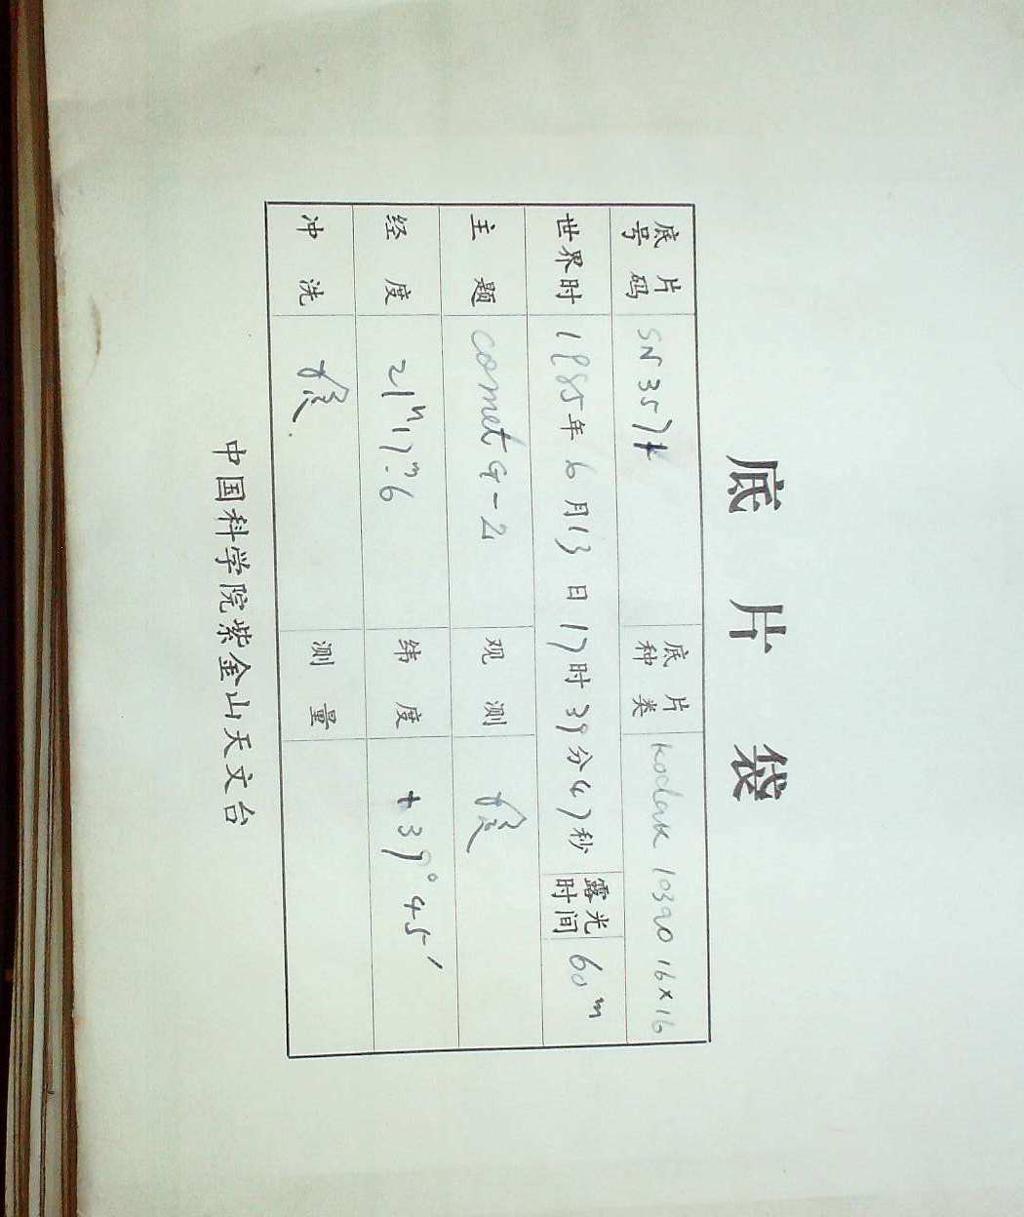 底片袋
底片号码 SN 357 底片种类 Kodak 103aO 16×16
世界时 1985年6月13日17时39分47秒 露光时间 60m
主题 Comet G-Z 观测
经度 21h17m.6 纬度 +39°45′
冲洗 测量
中国科学院紫金山天文台